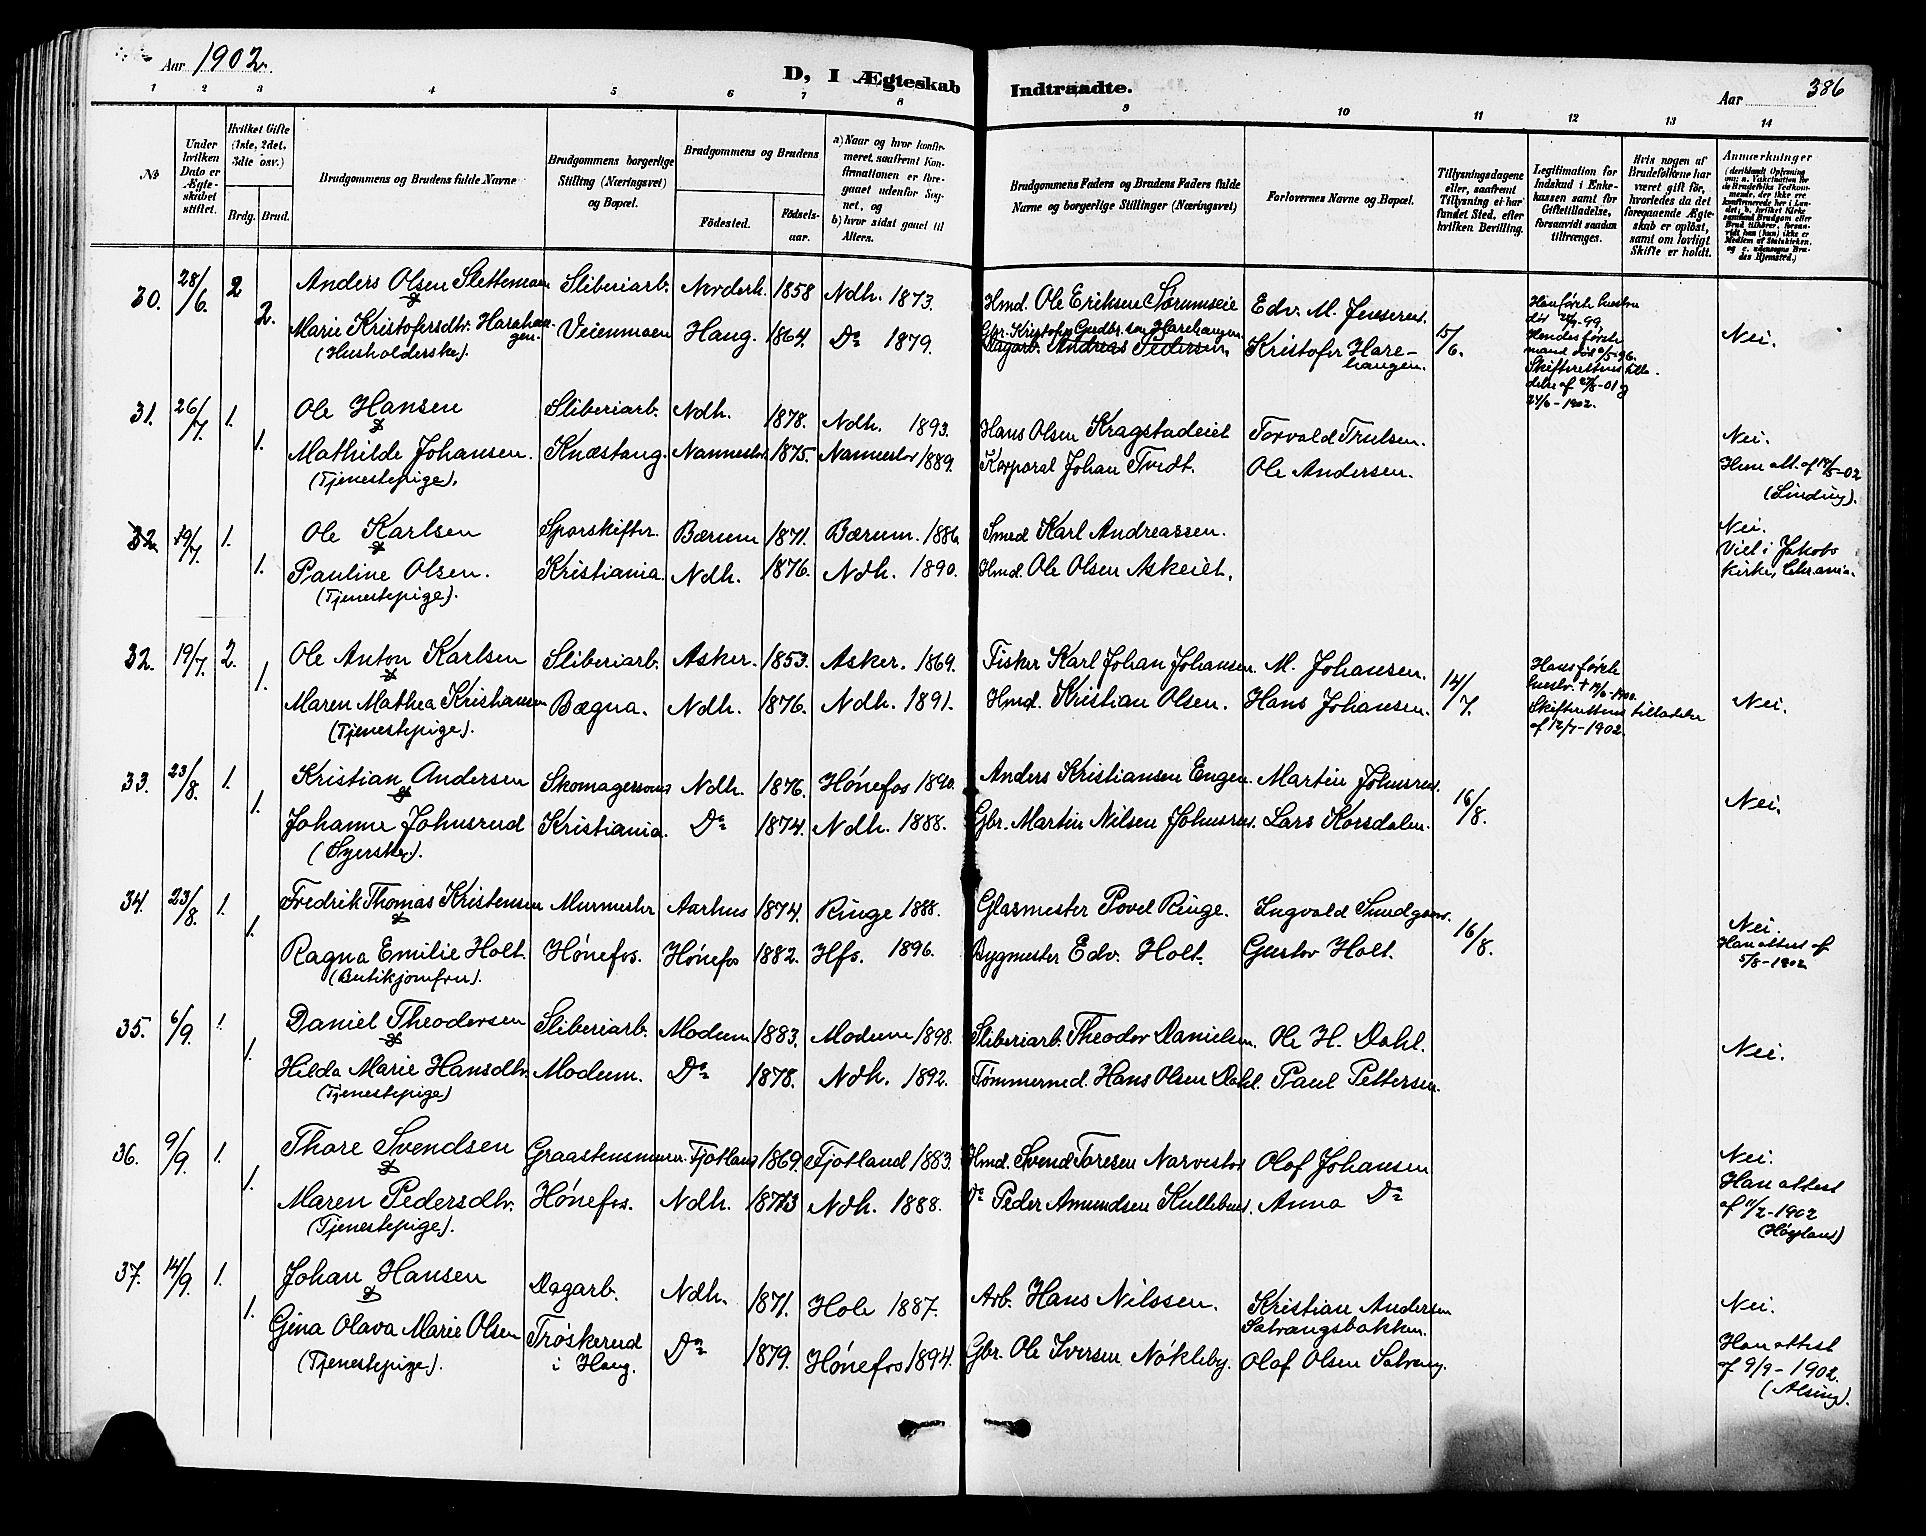 Aar 1902.
D, I Ægteskab Indtraadte.
Aar 386
1 2 3 4 5 6 7 8 9 10 11 12 13 14
No
Under hvilken Dato er Ægteskabet stiftet.
Hvilket Gifte (1ste, 2det, 3die osv.)
Brdg. Brud.
Brudgommens og Brudens fulde Navne
Brudgommens borgerlige Stilling (Næringsvei) og Bopæl.
Brudgommens og Brudens
Födested. Födselsaar.
a) Naar og hvor konfirmeret, saafremt Konfirmationen er foregaaet udenfor Sognet, og
b) hvor sidst gaaet til Alters.
Brudgommens Faders og Brudens Faders fulde Navne og borgerlige Stillinger (Næringsvei)
Forlovernes Navne og Bopæl.
Tillysningsdagene eller, saafremt Tillysning ei har fundet Sted, efter hvilken Bevilling.
Legitimation for Indskud i Enkekassen samt for Giftetilladelse, forsaavidt saadan tiltrænges.
Hvis nogen af Brudefolkene har været gift för, hvorledes da det foregaaende Ægteskab er oplöst, samt om lovligt Skifte er holdt.
Anmærkninger
30. 28/6. 2 Anders Olsen Slettemoen Sliberiarb. Norderh. 1858 Ndh. 1873. Hmd. Ole Eriksen Sørumseie Edv. M. Jensen
&
2. Marie Kristofersdtr. Harehaugen. Veienmoen Haug. 1864. Do 1879. Gbr. Kristofer Gudbr.sen Harehaugen
Dagarb. Andreas Pedersen. Kristofer Harehaugen. 15/6. Nei.
(Husholderske).
Hans første hustru død -99,
Hendes første mand død -96.
Skifterettens tilladelse af -01 og 24/6-1902.
31. 26/7. 1. Ole Hansen Sliberiarb. Ndh. 1878. Ndh. 1893. Hans Olsen Kragstadeiet Torvald Trulsen. Nei.
&
1. Mathilde Johansen. Knæstang. Nannestad 1875. Nannestad 1889. Korporal Johan Tvedt. Ole Andersen. Hun att. af -02
(Tjenestepige). (Linding).
32 19/7. 1. Ole Karlsen Sporskifter. Bærum 1871. Bærum. 1886. Smed Karl Andreassen. Nei.
&
1. Pauline Olsen. Kristiania. Ndh. 1876. Ndh. 1890. Hmd. Ole Olsen Askeiet. Viet i Jakobs Kirke, Chr.ania.
(Tjenestepige).
32. 19/7. 2. Ole Anton Karlsen Sliberiarb. Asker. 1853. Asker. 1869. Fisker Karl Johan Johansen M. Johansen. 14/7.
&
1. Maren Mathea Kristiansen Bægna. Ndh. 1876. Ndh. 1891. Hmd. Kristian Olsen. Hans Johansen. Nei.
(Tjenestepige).
Hans første hustr. † -1900.
Skifterettens tilladelse af 12/7-1902.
33. 23/8. 1. Kristian Andersen Skomagersvend Ndh. 1876. Hönefos 1890. Anders Kristiansen Engen Martin Johnsrud. 16/8. Nei.
&
1. Johanne Johnsrud Kristiania. Do 1874. Ndh. 1888. Gbr. Martin Nilsen Johnsrud. Lars Korsdalen.
(Syerske).
34. 23/8. 1. Fredrik Thomas Kristensen Murmester Aarhus 1874. Ringe 1888. Glasmester Povel Ringe. Ingvald Smedgaard. 16/8. Nei.
&
1. Ragna Emilie Holt. Hönefos. Hönefos 1882. Hfs. 1896. Bygmester Edv. Holt. Gustav Holt. Han attest af 5/8-1902
(Butikjomfru).
35. 6/9. 1. Daniel Theodorsen Sliberiarb. Modum 1883. Modum 1898. Sliberiarb. Theodor Danielsen. Ole H. Dahl. Nei.
&
1. Hilda Marie Hansdtr. Modum. Do 1878. Ndh. 1892. Tømmermd. Hans Olsen Dahl. Paul Pettersen.
(Tjenestepige)
36. 9/9. 1. Thore Svendsen Graastensmurer. Fjotland 1869. Fjotland 1883. Hmd. Svend Toresen Narvestad Olaf Johansen Nei.
&
1. Maren Pedersdtr. Hönefos. Ndh. 1873 Ndh. 1888. Do Peder Amundsen Kullebund. Anna Do Han attest af /2-1902
(Tjenestepige). (Høyland)
37. 14/9. 1. Johan Hansen Dagarb. Ndh. 1871. Hole 1887. Arb. Hans Nilssen. Kristian Andersen Satrangsbakken. Nei.
&
1. Gina Olava Marie Olsen Trøskerud i Haug. Do 1879. Hönefos 1894. Gbr. Ole Iversen Nökleby. Olaf Olsen Satrang. Han attest af 9/9-1902.
(Tjenestepige). (Alsing).